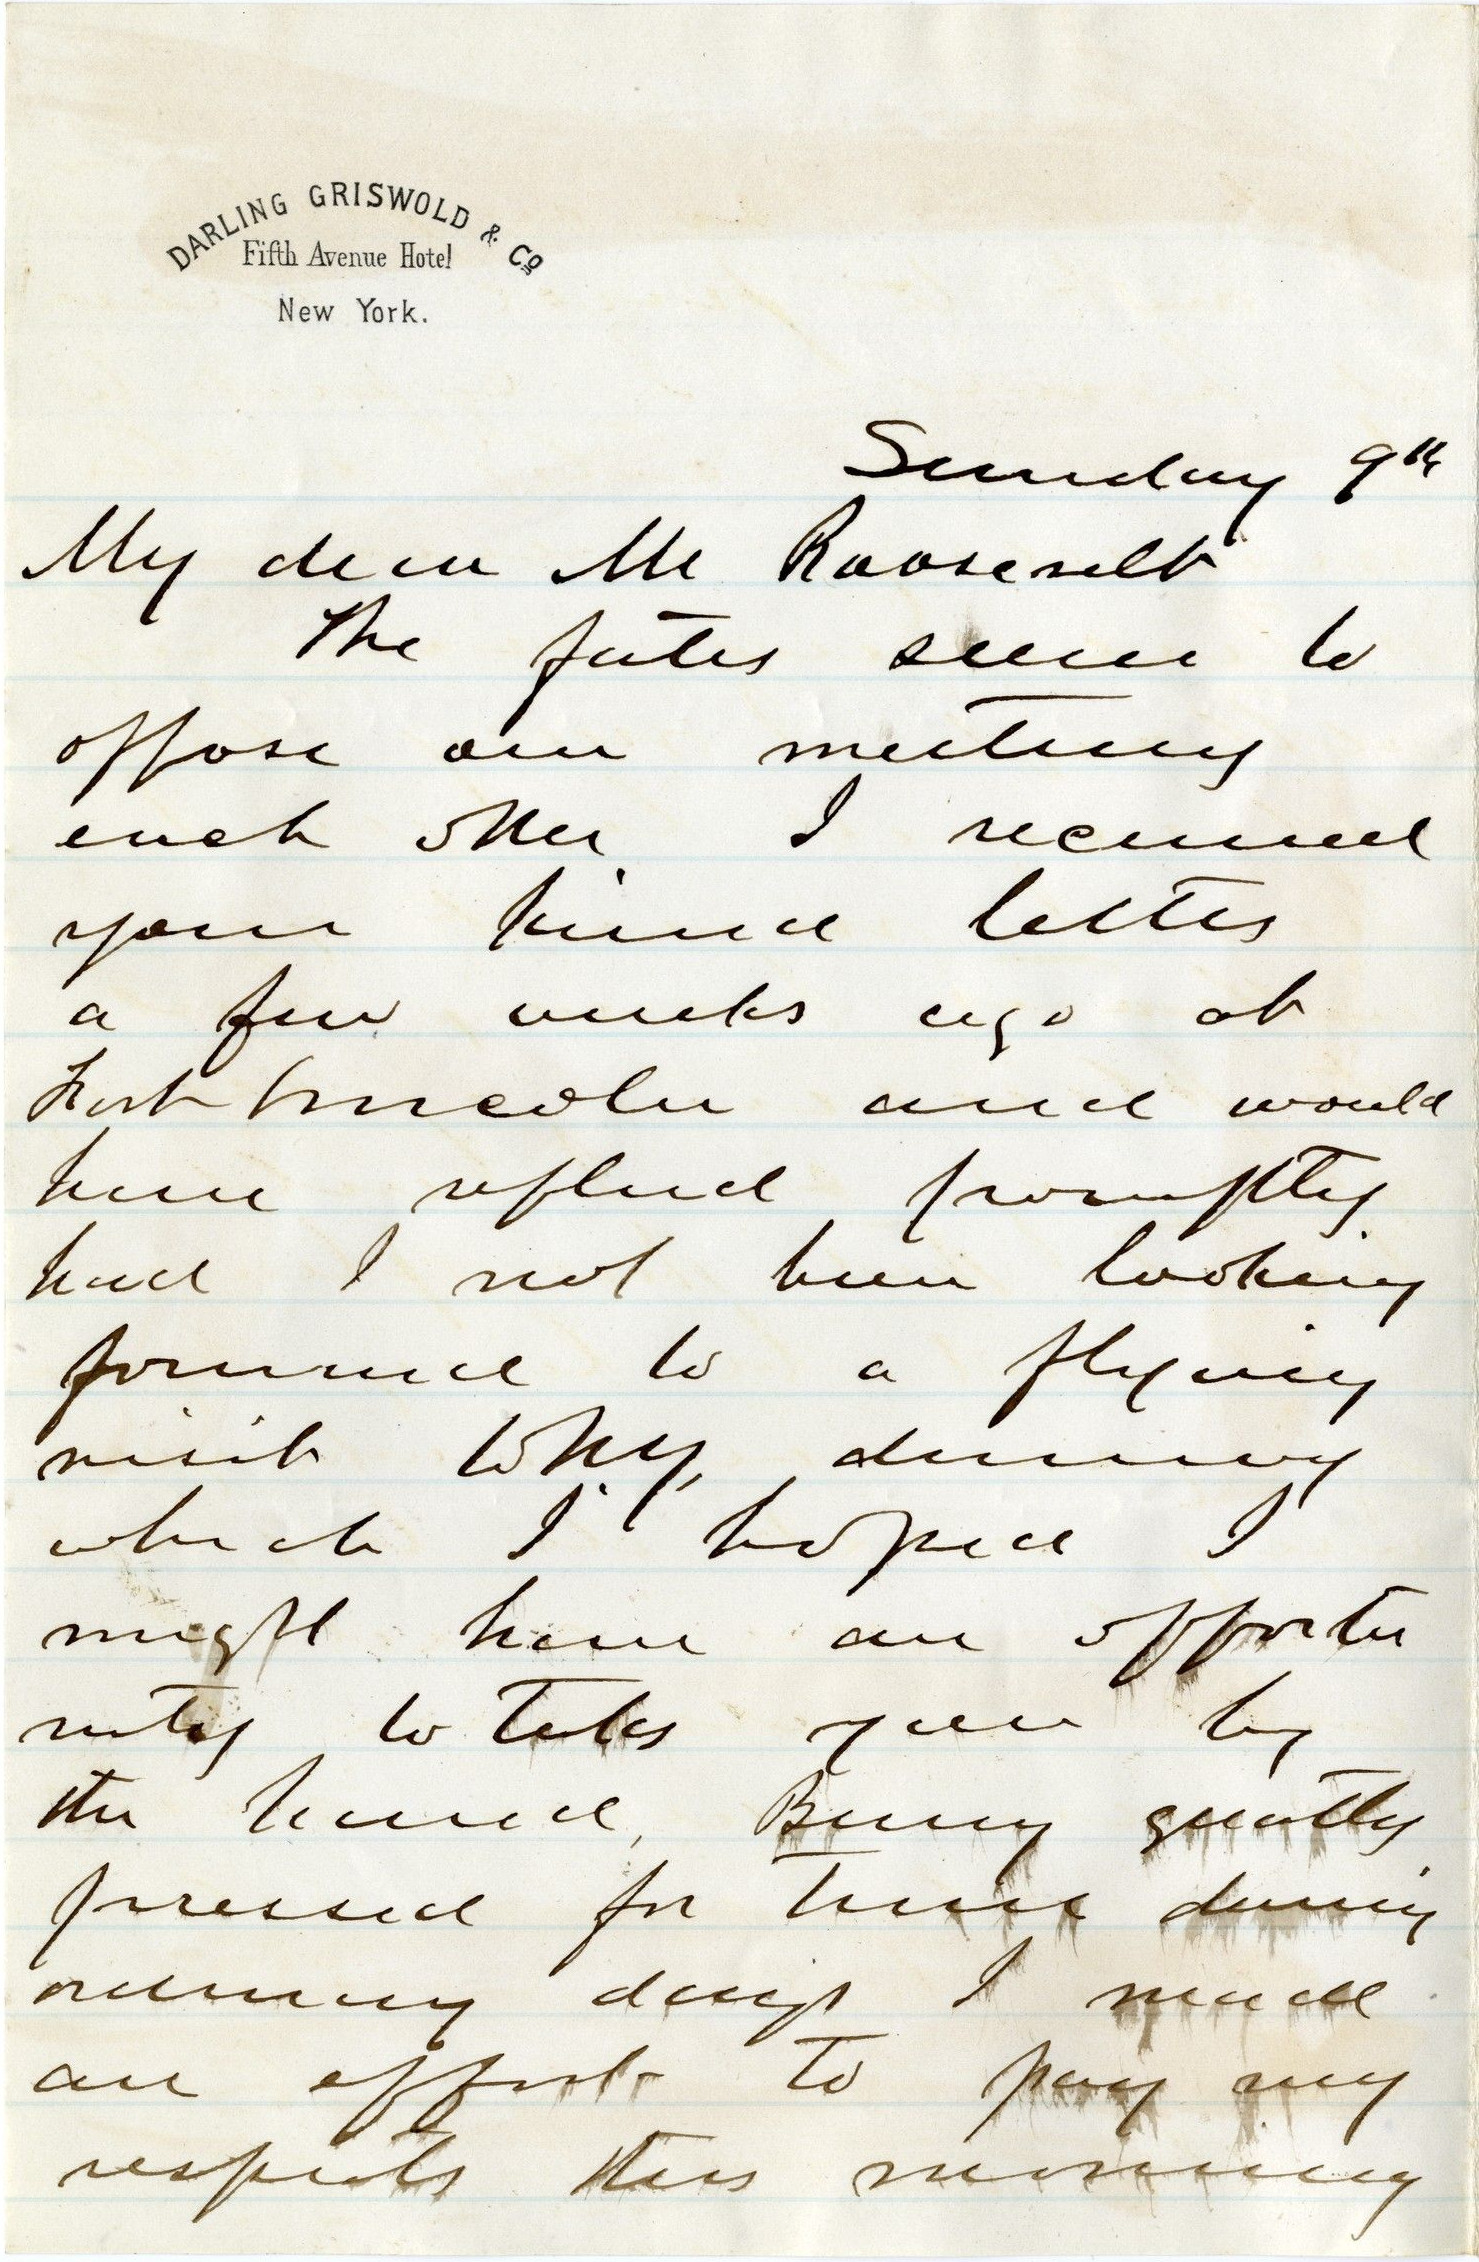 DARLING GRISWOLD & Co
Fifth Avenue Hotel
New York.
Sunday 9th
My dear Mr Roosevelt
The fates seem to
oppose our meeting
each other I received
your kind letter
a few weeks ago at
Fort Lincoln and would
have replied promptly
had I not been looking
forward to a flying
visit to N.Y. during
which I hoped I
might have an opportu
nity to take you by
the hand. Being greatly
pressed for time during
ordinary days I made
an effort to pay my
respects this morning